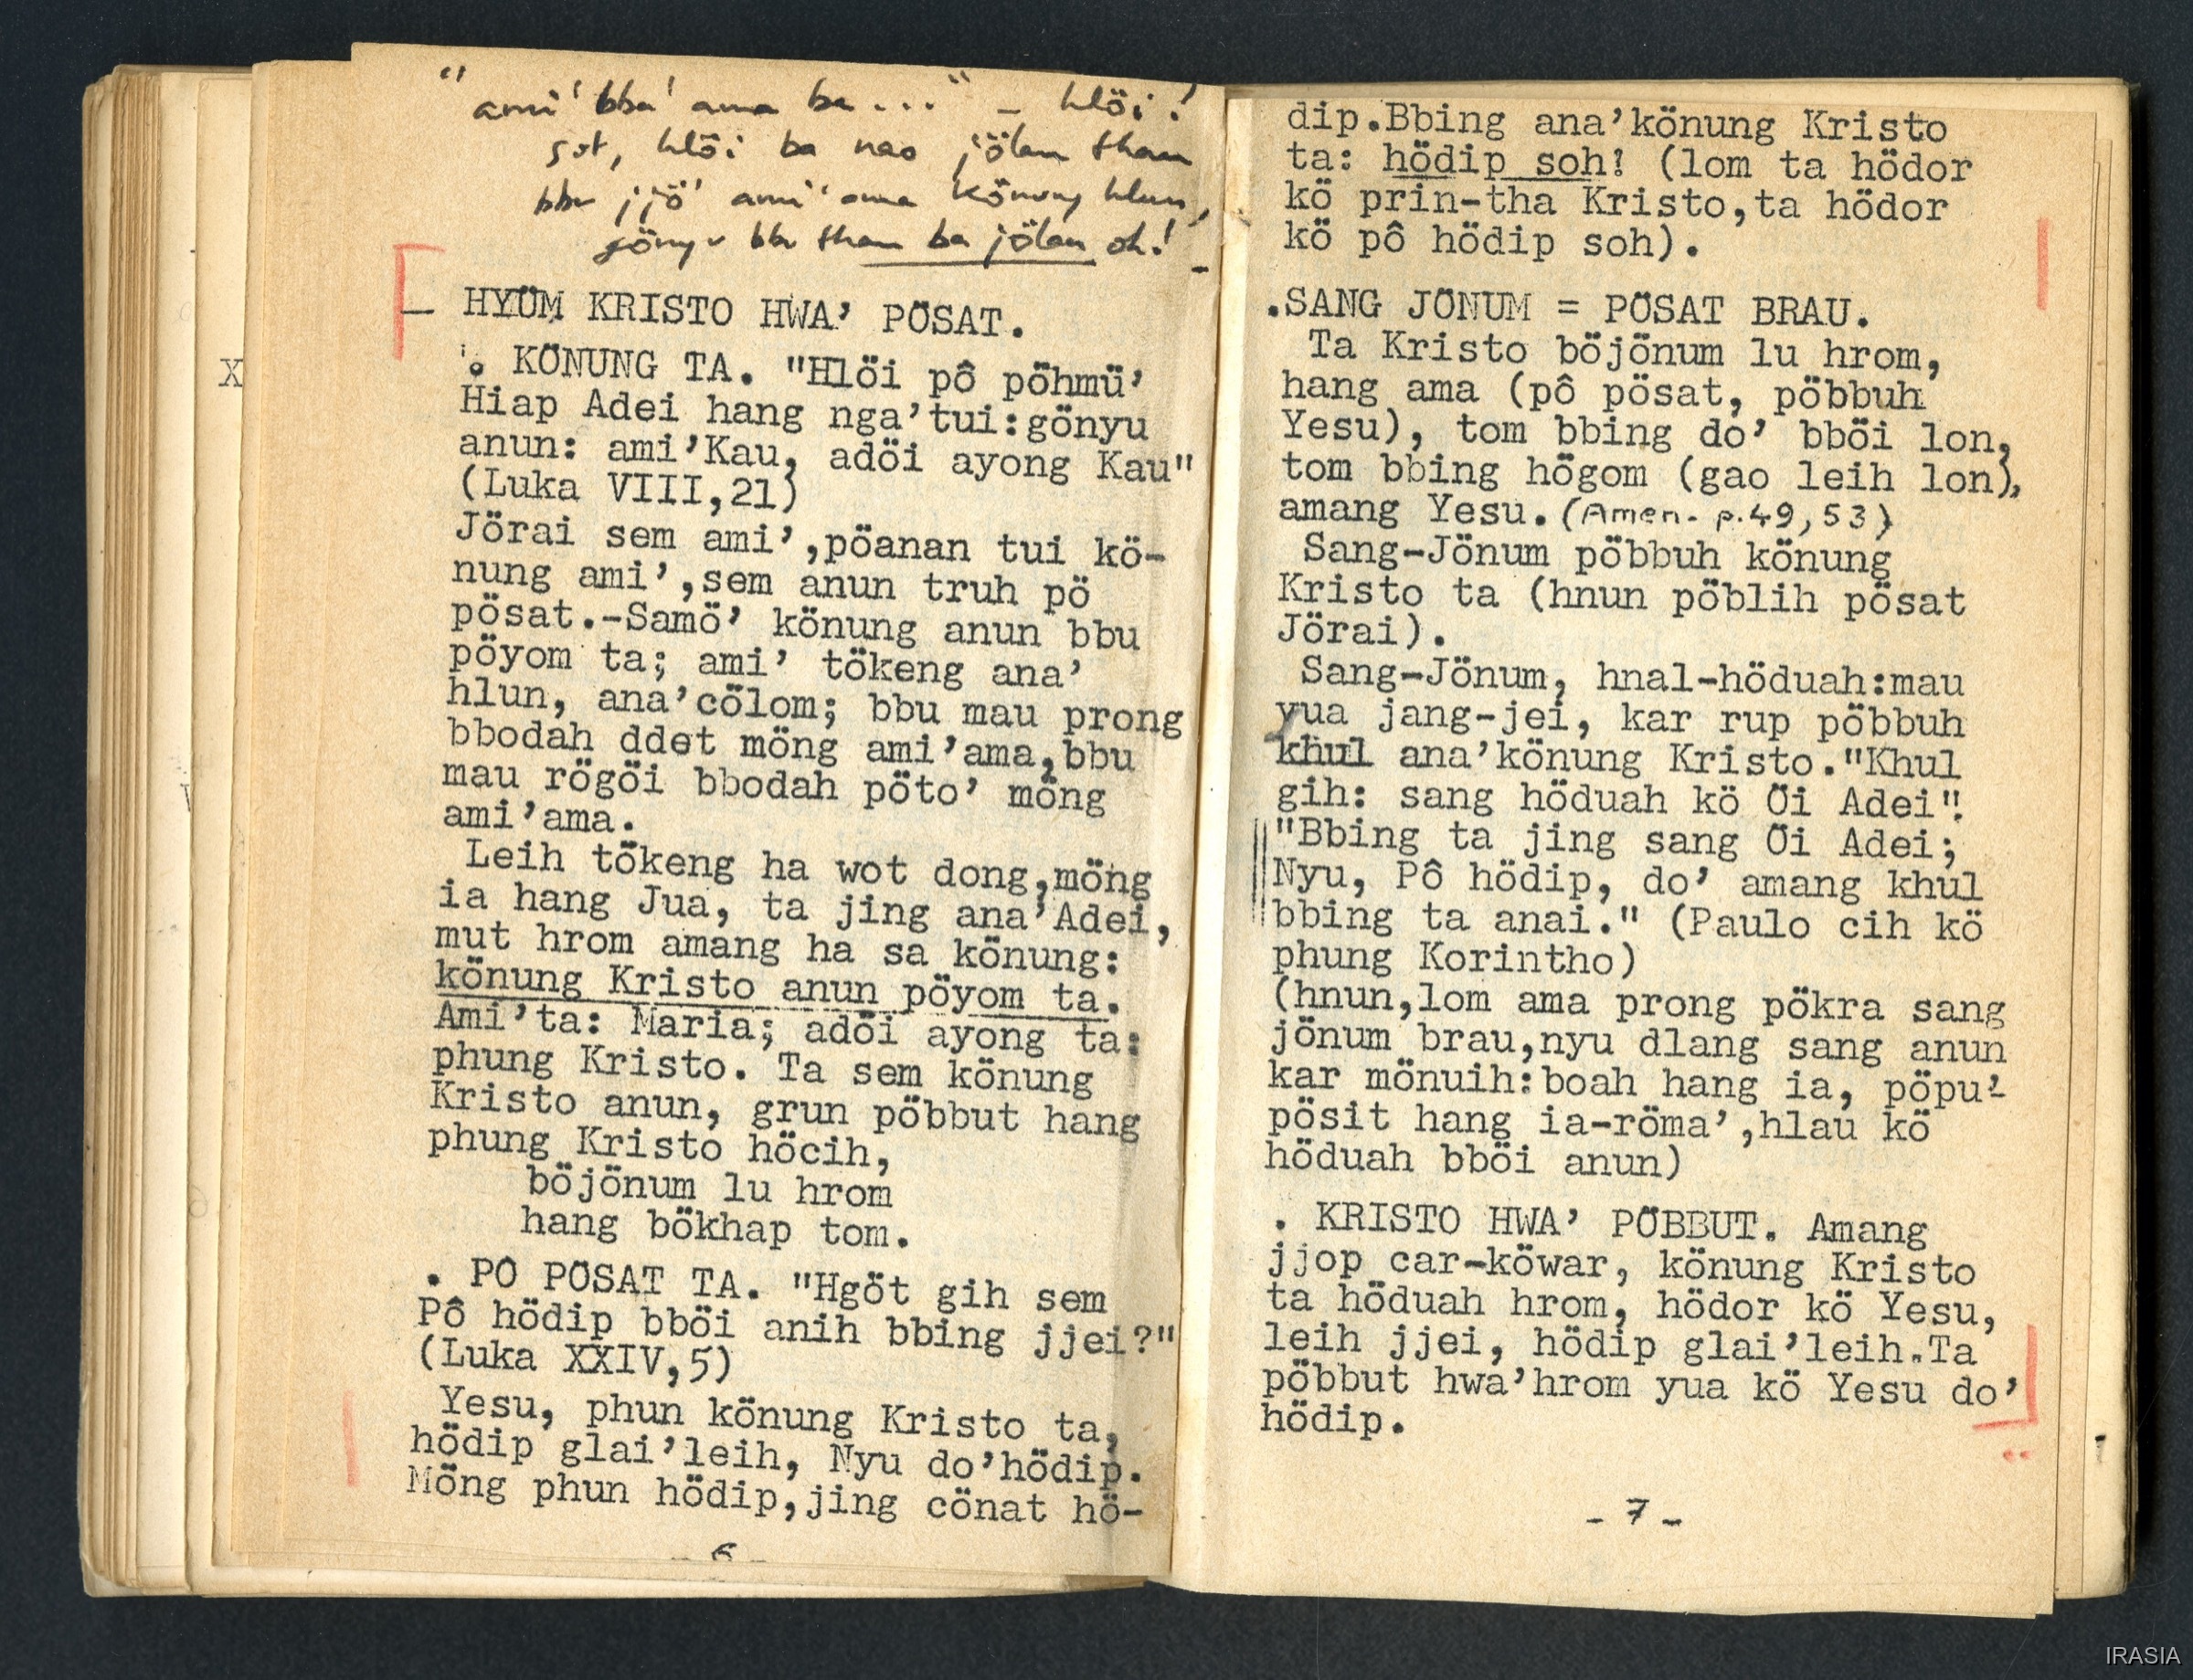 "ami' bba' ama ba..." - hlöi!
sot, hlöi ba nao jölan tham
bbu jjö' ami' ama könung hlun,
gönyu bbu tham ba jölan oh!
— HYÜM KRISTO HWA' PÖSAT.
. KÖNUNG TA. "Hlöi pô pöhmü'
Hiap Adei hang nga'tui:gönyu
anun: ami'Kau, adöi ayong Kau"
(Luka VIII,21)
Jörai sem ami',pöanan tui kö-
nung ami',sem anun truh pö
pösat.-Samö' könung anun bbu
pöyom ta; ami' tökeng ana'
hlun, ana'cölom; bbu mau prong
bbodah ddet möng ami'ama,bbu
mau rögöi bbodah pöto' möng
ami'ama.
Leih tökeng ha wot dong,möng
ia hang Jua, ta jing ana'Adei,
mut hrom amang ha sa könung:
könung Kristo anun pöyom ta.
Ami'ta: Maria; adöi ayong ta:
phung Kristo. Ta sem könung
Kristo anun, grun pöbbut hang
phung Kristo höcih,
böjönum lu hrom
hang bökhap tom.
. PO PÖSAT TA. "Hgöt gih sem
Pô hödip bböi anih bbing jjei?"
(Luka XXIV,5)
Yesu, phun könung Kristo ta,
hödip glai'leih, Nyu do'hödip.
Möng phun hödip,jing cönat hö-
- 6 -
dip.Bbing ana'könung Kristo
ta: hödip soh! (lom ta hödor
kö prin-tha Kristo,ta hödor
kö pô hödip soh).
.SANG JÖNUM = PÖSAT BRAU.
Ta Kristo böjönum lu hrom,
hang ama (pô pösat, pöbbuh
Yesu), tom bbing do' bböi lon,
tom bbing högom (gao leih lon),
amang Yesu. (Amen- p.49,53)
Sang-Jönum pöbbuh könung
Kristo ta (hnun pöblih pösat
Jörai).
Sang-Jönum, hnal-höduah:mau
yua jang-jei, kar rup pöbbuh
khul ana'könung Kristo."Khul
gih: sang höduah kö Öi Adei".
"Bbing ta jing sang Öi Adei;
Nyu, Pô hödip, do' amang khul
bbing ta anai." (Paulo cih kö
phung Korintho)
(hnun,lom ama prong pökra sang
jönum brau,nyu dlang sang anun
kar mönuih:boah hang ia, pöpu'-
pösit hang ia-röma',hlau kö
höduah bböi anun)
. KRISTO HWA' PÖBBUT. Amang
jjop car-köwar, könung Kristo
ta höduah hrom, hödor kö Yesu,
leih jjei, hödip glai'leih.Ta
pöbbut hwa'hrom yua kö Yesu do'
hödip.
- 7 -
X
IRASIA